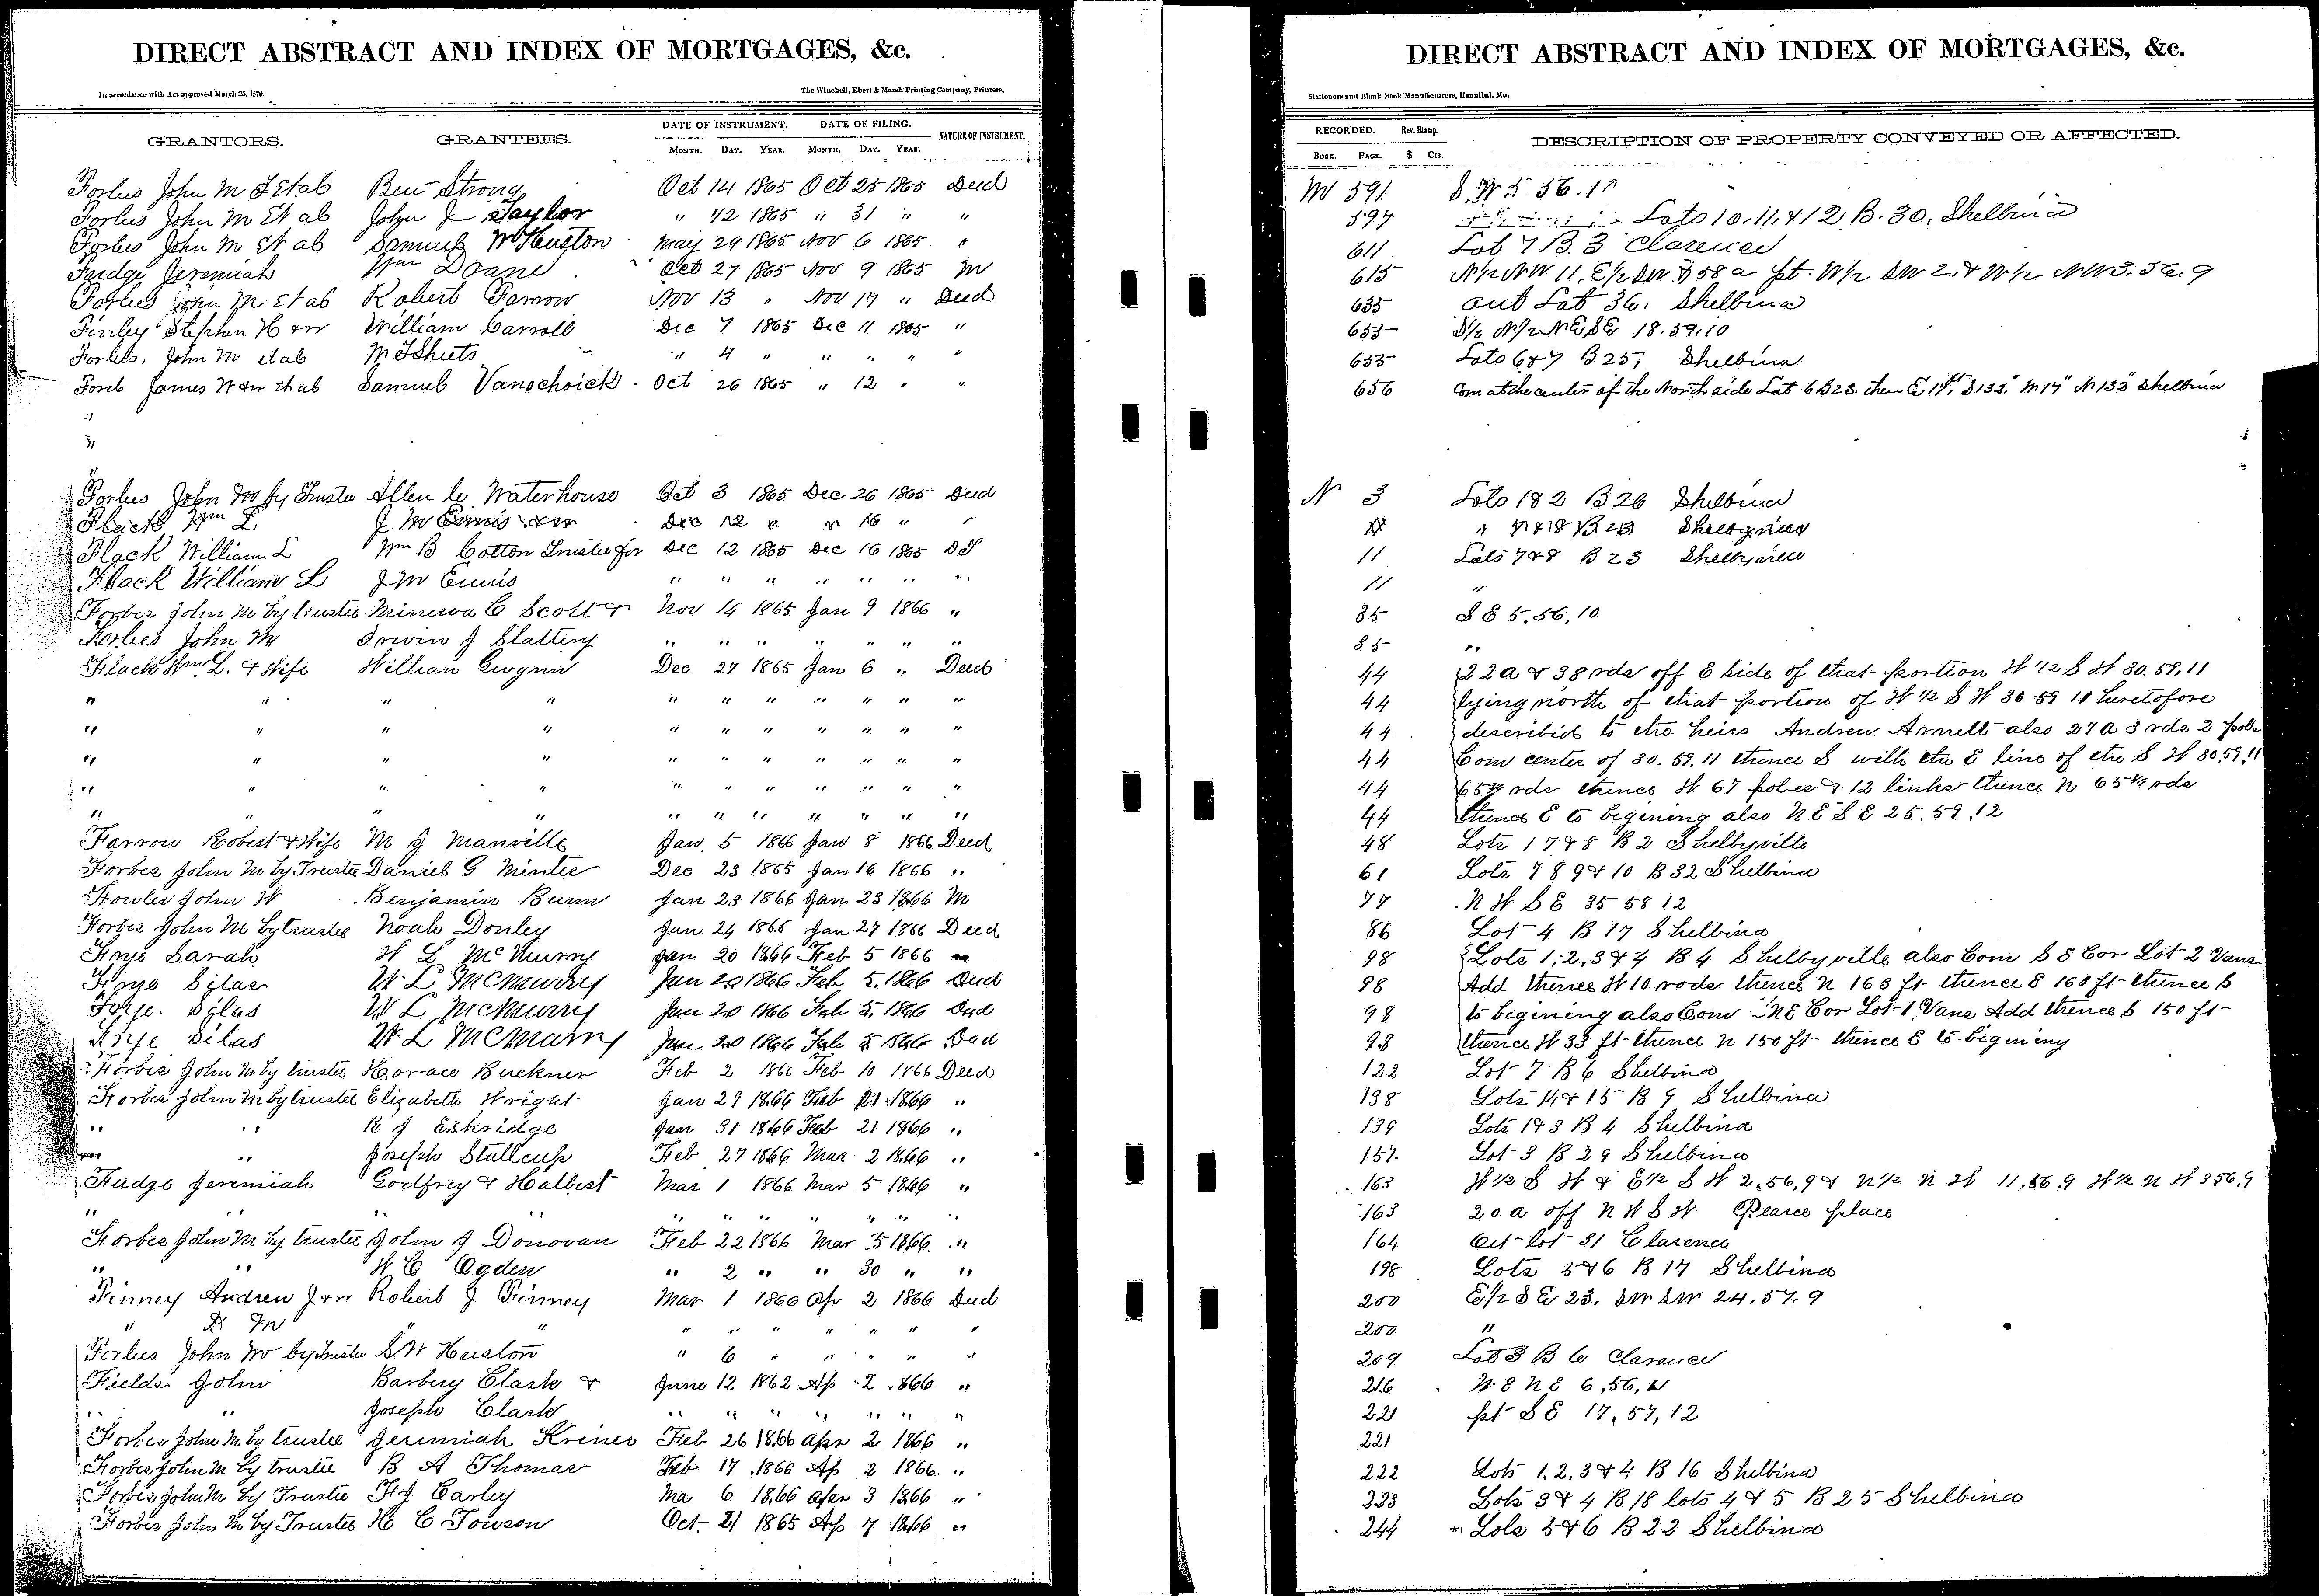 DIRECT ABSTRACT AND INDEX OF MORTGAGES, &c.
In accordance with Act approved March 25, 1870.
The Winchell, Ebert & Marsh Printing Company, Printers,
GRANTORS. GRANTEES. DATE OF INSTRUMENT. DATE OF FILING. NATURE OF INSTRUMENT.
MONTH. DAY. YEAR. MONTH. DAY. YEAR.
Forbes John M Et al Ben Strong Oct 14 1865 Oct 25 1865 Deed
Forbes John M Et al John J Taylor " 12 1865 " 31 " "
Forbes John M Et al Samuel W Huston May 29 1865 Nov 6 1865 "
Fudge Jeremiah Wm Doane Oct 27 1865 Nov 9 1865 M
Forbes John M Et al Robert Farrow Nov 13 " Nov 17 " Deed
Finley Stephen H & w William Carroll Dec 7 1865 Dec 11 1865 "
Forbes, John M et al M F Sheets " 4 " " " " "
Ford James W & w Et al Samuel Vanschoick Oct 26 1865 " 12 " "
"
"
"
Forbes John M by Trustee Allen Waterhouse Oct 3 1865 Dec 26 1865 Deed
Flack Wm L J M Ennis & w Dec 12 " " 16 " "
Flack William L Wm B Cotton Trustee for Dec 12 1865 Dec 16 1865 D T
Flack William L J M Ennis " " " " " " "
Forbes John M by trustee Minerva C Scott & Nov 14 1865 Jan 9 1866 "
Forbes John M Irwin J Slattery " " " " " " "
Flack Wm L. & Wife William Gwynn Dec 27 1865 Jan 6 " Deed
" " " " " " " " " " "
" " " " " " " " " " "
" " " " " " " " " " "
" " " " " " " " " " "
" " " " " " " " " "
Farrow Robert & Wife M J Manville Jan. 5 1866 Jan 8 1866 Deed
Forbes John M by Trustee Daniel G Minter Dec 23 1865 Jan 16 1866 "
Fowler John W Benjamin Bunn Jan 23 1866 Jan 23 1866 M
Forbes John M by trustee Noah Donley Jan 24 1866 Jan 27 1866 Deed
Frye Sarah W L McMurry Jan 20 1866 Feb 5 1866 "
Frye Silas W L McMurry Jan 20 1866 Feb 5. 1866 Deed
Frye. Silas W L McMurry Jan 20 1866 Feb 5. 1866 Deed
Frye Silas W L McMurry Jan 20 1866 Feb 5 1866 Deed
Forbes John M by trustee Horace Buckner Feb 2 1866 Feb 10 1866 Deed
Forbes John M by trustee Elizabeth Wright Jan 29 1866 Feb 21 1866 "
" " R J Eskridge Jan 31 1866 Feb 21 1866 "
" " Joseph Stallcup Feb 27 1866 Mar 2 1866 "
Fudge Jeremiah Godfrey & Halbert Mar 1 1866 Mar 5 1866 "
" " " " " " " " "
Forbes John M by trustee John J Donovan Feb 22 1866 Mar 5 1866 "
" " W C Ogden " 2 " " 30 " "
Finney Andrew J & w Robert J Finney Mar 1 1866 Ap 2 1866 Deed
" " " " " " " " "
Forbes John M by Trustee S W Huston " 6 " " " " "
Fields John Barbery Clark & June 12 1862 Ap 2 1866 "
" " Joseph Clark " " " " " " "
Forbes John M by trustee Jeremiah Kriner Feb 26 1866 Apr 2 1866 "
Forbes John M by trustee B A Thomas Feb 17 1866 Ap 2 1866. "
Forbes John M by Trustee Carley Ma 6 1866 Apr 3 1866 "
Forbes John M by Trustee H C Towson Oct 21 1865 Ap 7 1866 "
DIRECT ABSTRACT AND INDEX OF MORTGAGES, &c.
Stationers and Blank Book Manufacturers, Hannibal, Mo.
RECORDED. Rev. Stamp. DESCRIPTION OF PROPERTY CONVEYED OR AFFECTED.
BOOK. PAGE. $ Cts.
M 591 S.W 5. 56.
597 Lots 10.11.&12 B.30. Shelbina
611 Lot 7 B.3 Clarence
615 N½ NW 11. E½ SW & 58 a pt. W½ SW 2. & W½ NW 3. 56. 9
635 Out Lot 36. Shelbina
653 S½ N½ NE SE 18.59.10
653 Lots 6&7 B25, Shelbina
656 Com at the center of the North side Lot 6 B23. then E 17 S 132 W 17 N 132 Shelbina
N 3 Lots 1&2 B26 Shelbina
" 7&8 B 23 Shelbyville
11 Lots 7&8 B 23 Shelbyville
11 "
35 S E 5.56.10
35 "
44 22 a & 38 rds off E side of that portion W ½ S W 30.59.11
44 lying north of that portion of W ½ S W 30 59 11 heretofore
44 described to the heirs Andrew Arnell also 27 a 3 rds 2 pols
44 Com center of 30.59.11 thence S with the E line of the S W 30.59.11
44 65¾ rds thence W 67 poles & 12 links thence N 65¾ rds
44 thence E to begining also N E S E 25.59.12
48 Lots 1 7&8 B 2 Shelbyville
61 Lots 7 8 9 & 10 B 32 Shelbina
77 N W S E 35 58 12
86 Lot 4 B 17 Shelbina
98 Lots 1.2.3&4 B 4 Shelbyville also Com S E Cor Lot 2 Vans
98 Add thence W 10 rods thence N 163 ft thence E 163 ft thence S
98 to begining also Com NE Cor Lot 1 Vans Add thence S 150 ft
98 thence W 33 ft thence N 150 ft thence E to begining
122 Lot 7 B 6 Shelbina
138 Lots 14 & 15 B 9 Shelbina
139 Lots 1&3 B 4 Shelbina
157. Lot 3 B 29 Shelbina
163 W ½ S W & E ½ S W 2.56.9 & N ½ N W 11.56.9 W ½ N W 3 56.9
163 20 a off N W S W Pearce place
164 Out lot 31 Clarence
198 Lots 5&6 B 17 Shelbina
200 E½ S E 23. SW SW 24.57.9
200 "
209 Lot 3 B 6 Clarence
216 N E N E 6,56,
221 pt S E 17,57,12
221
222 Lots 1.2.3&4 B 16 Shelbina
223 Lots 3 & 4 B 18 lots 4 & 5 B 25 Shelbina
244 Lots 5&6 B 22 Shelbina